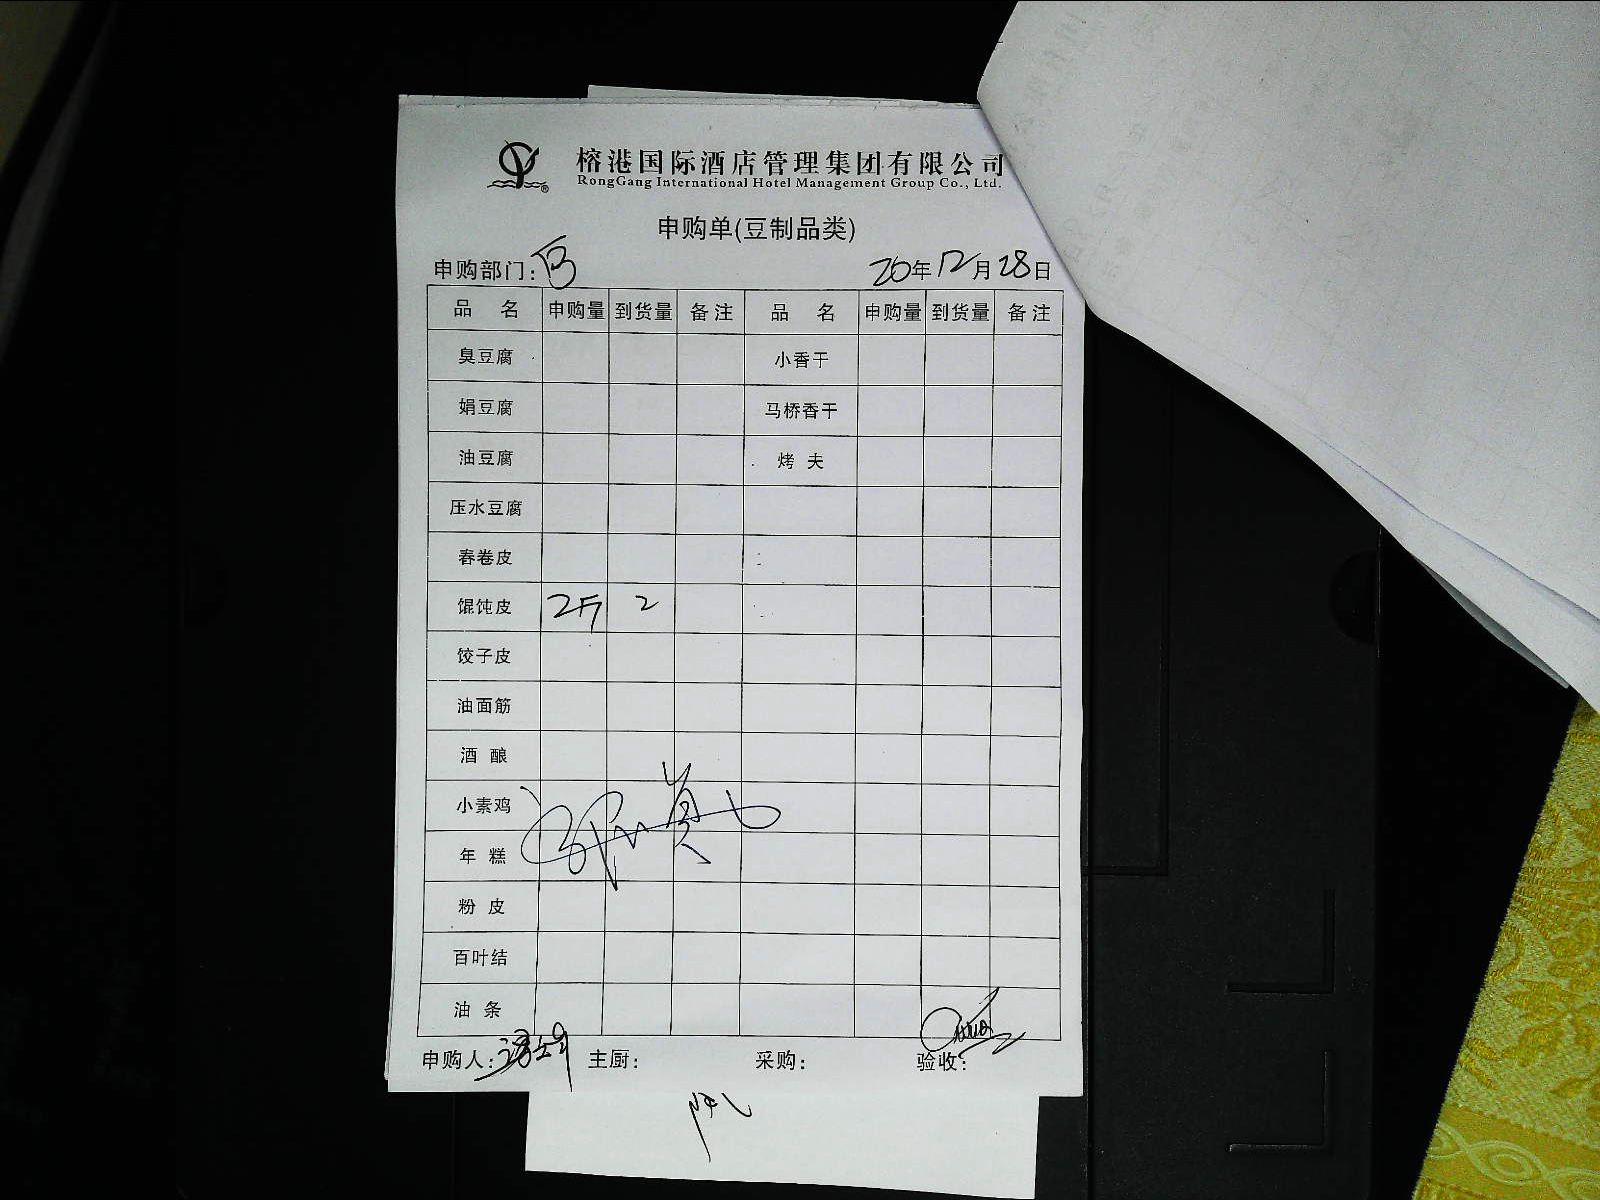 榕港国际酒店管理集团有限公司
RongGang International Hotel Management Group Co., Ltd.
申购单(豆制品类)
申购部门: 20年12月28日
品 名 申购量 到货量 备注 品 名 申购量 到货量 备注
臭豆腐 小香干
娟豆腐 马桥香干
油豆腐 烤 夫
压水豆腐
春卷皮
馄饨皮 2斤 2
饺子皮
油面筋
酒 酿
小素鸡
年 糕
粉 皮
百叶结
油 条
申购人: 主厨: 采购: 验收: